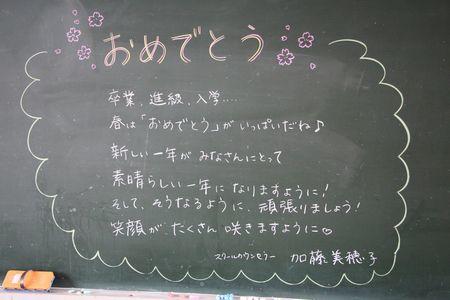 おめでとう
卒業、進級、入学……
春は「おめでとう」がいっぱいだね♪
新しい一年がみなさんにとって
素晴らしい一年になりますように!
そして、そうなるように、頑張りましょう!
笑顔がたくさん咲きますように♡
スクールカウンセラー 加藤美穂子